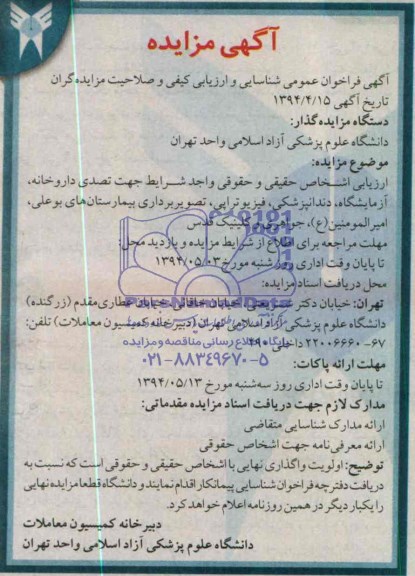 آگهی مزایده
آگهی فراخوان عمومی شناسایی و ارزیابی کیفی و صلاحیت مزایده گران
تاریخ آگهی ۱۳۹۴/۴/۱۵
دستگاه مزایده گذار:
دانشگاه علوم پزشکی آزاد اسلامی واحد تهران
موضوع مزایده:
ارزیابی اشخاص حقیقی و حقوقی واجد شرایط جهت تصدی داروخانه،
آزمایشگاه، دندانپزشکی، فیزیوتراپی، تصویربرداری بیمارستان های بوعلی،
امیرالمومنین(ع)، جواهری و کلینیک قدس
مهلت مراجعه برای اطلاع از شرایط مزایده و بازدید محل:
تا پایان وقت اداری روز شنبه مورخ ۱۳۹۴/۰۵/۰۳
محل دریافت اسناد مزایده:
تهران: خیابان دکتر شریعتی، خیابان خاقانی، خیابان عطاری مقدم (زرگنده)
دانشگاه علوم پزشکی آزاد اسلامی تهران (دبیرخانه کمیسیون معاملات) تلفن:
۶۷-۲۲۰۰۶۶۶۰ داخلی ۴۹۰
پایگاه اطلاع رسانی مناقصه و مزایده
۰۲۱-۸۸۳۴۹۶۷۰-۵
مهلت ارائه پاکات:
تا پایان وقت اداری روز سه شنبه مورخ ۱۳۹۴/۰۵/۱۳
مدارک لازم جهت دریافت اسناد مزایده مقدماتی:
ارائه مدارک شناسایی متقاضی
ارائه معرفی نامه جهت اشخاص حقوقی
توضیح: اولویت واگذاری نهایی با اشخاص حقیقی و حقوقی است که نسبت به
دریافت دفترچه فراخوان شناسایی پیمانکار اقدام نمایند و دانشگاه قطعا مزایده نهایی
را یکبار دیگر در همین روزنامه اعلام خواهد کرد.
دبیرخانه کمیسیون معاملات
دانشگاه علوم پزشکی آزاد اسلامی واحد تهران